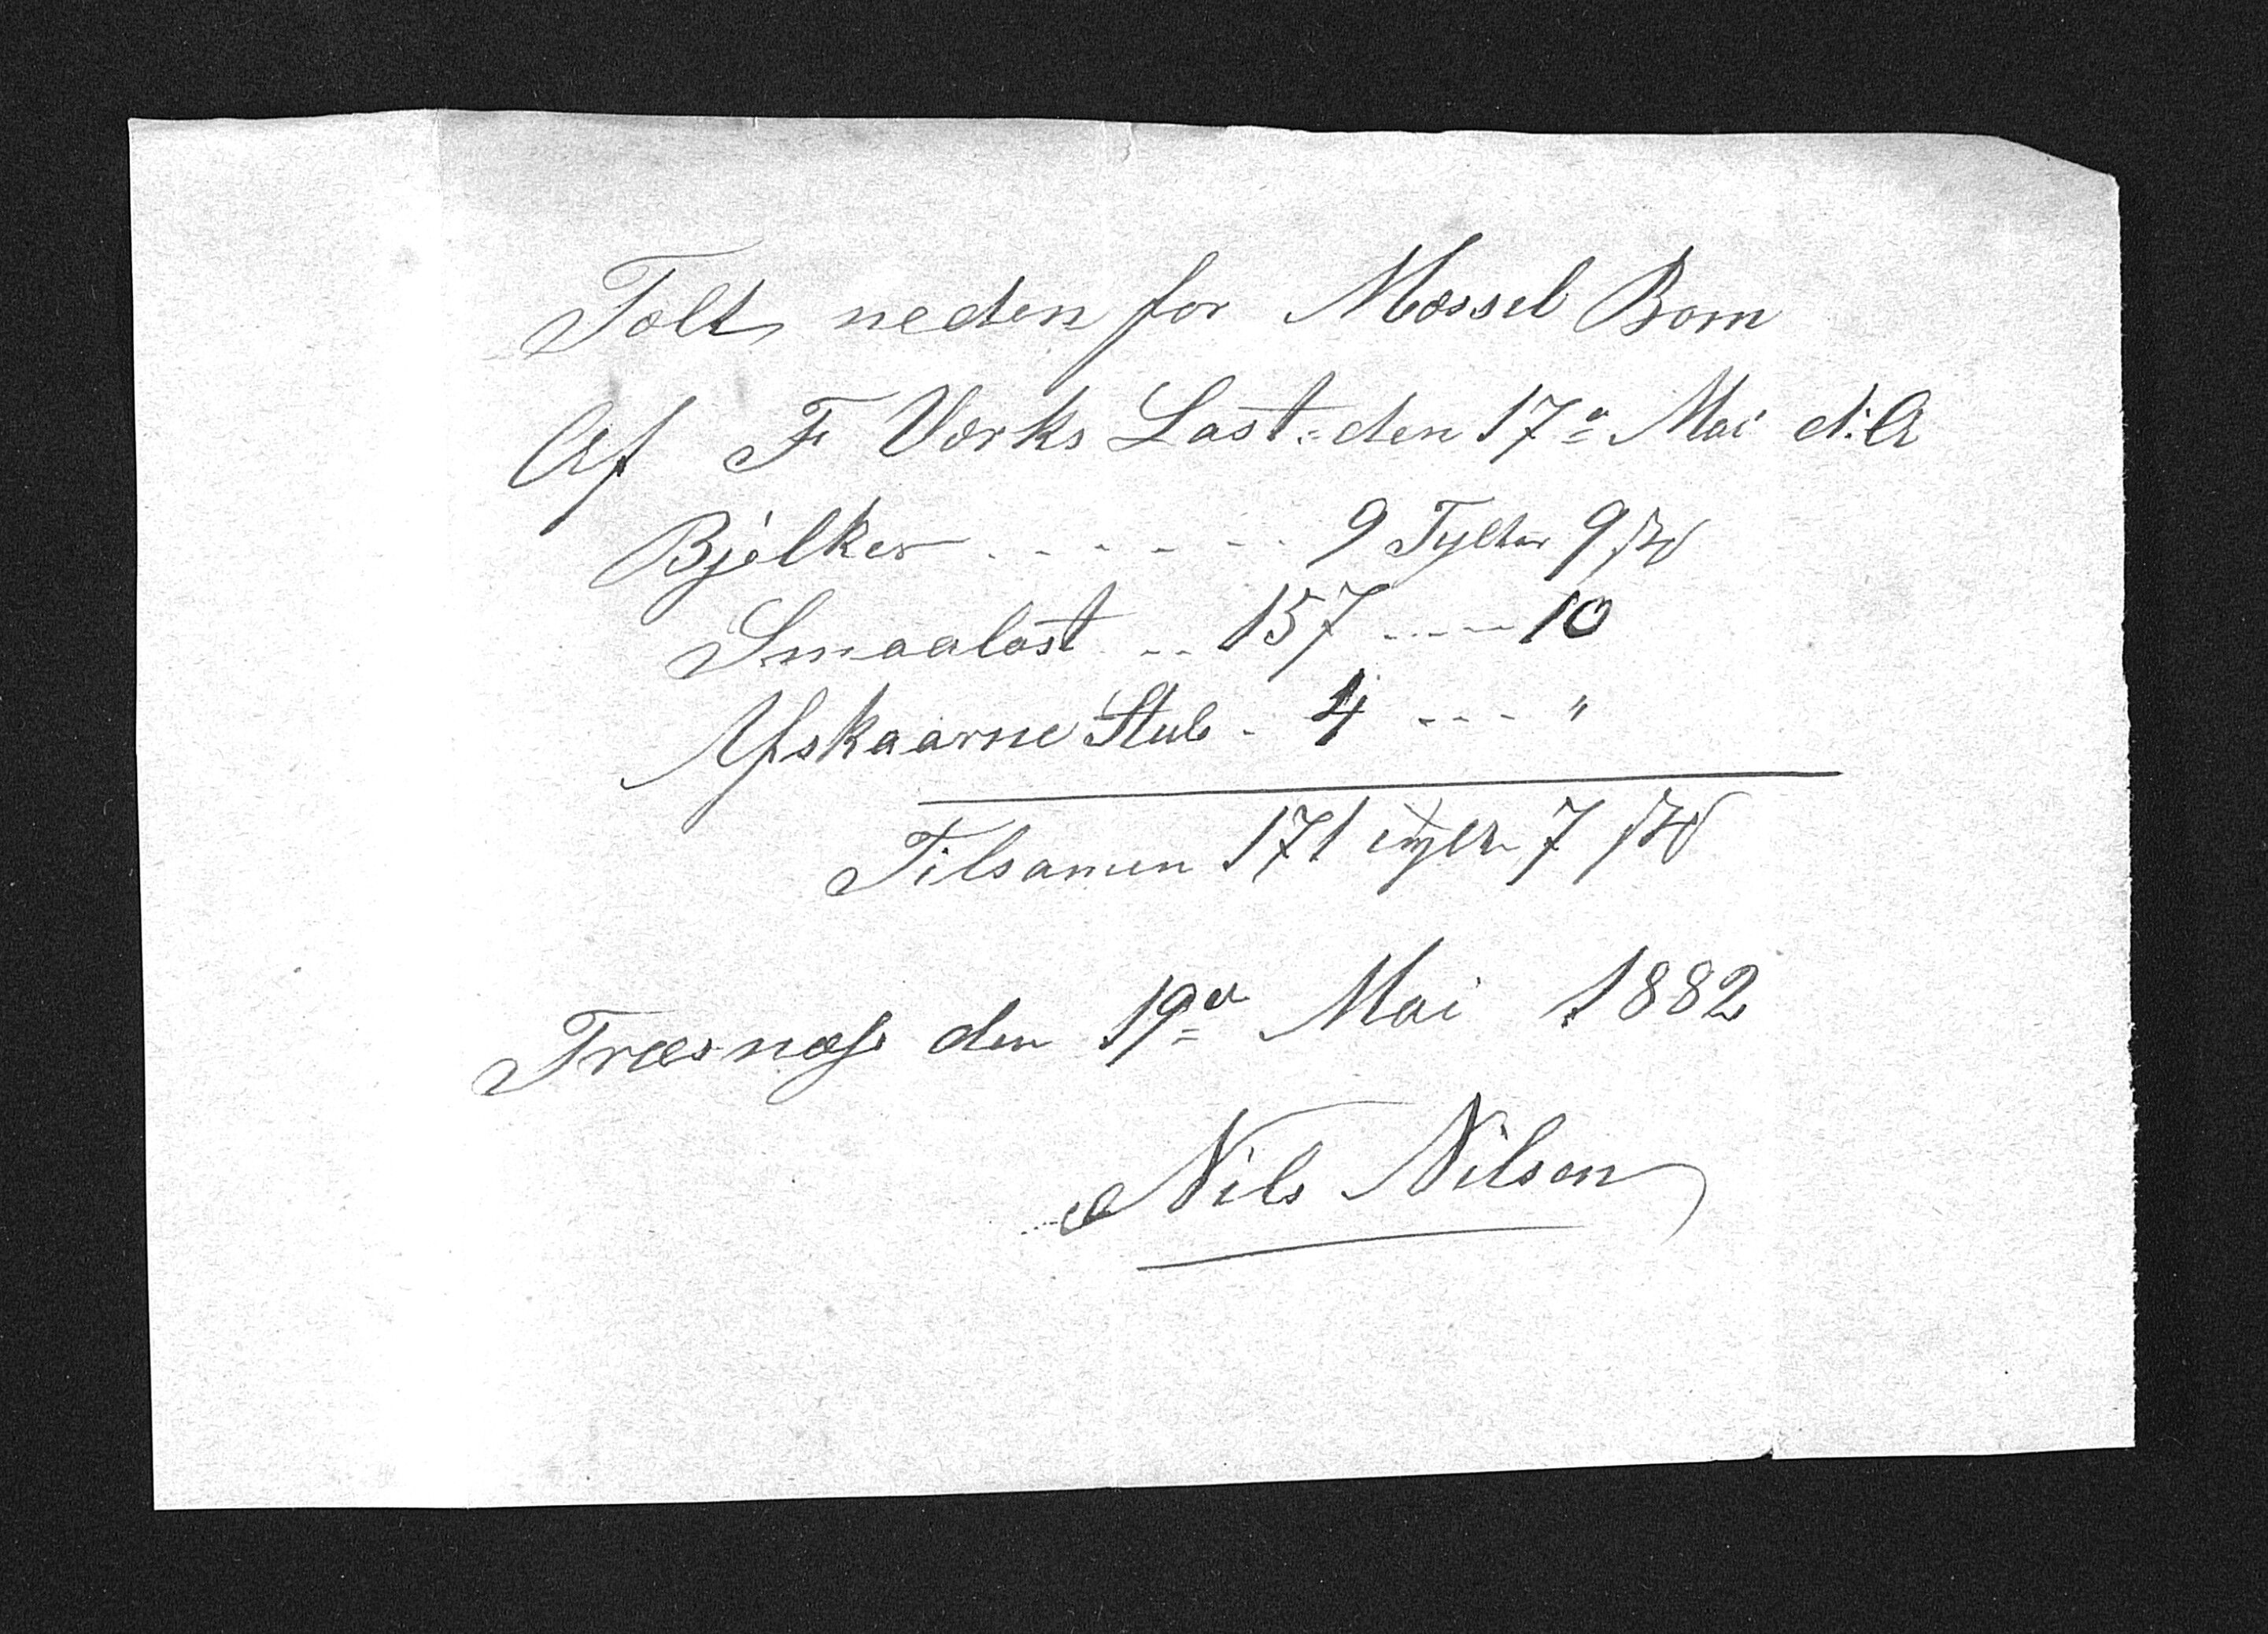 Tolt neden for Mossel Bom
Af F Værks Last. den 17de Mai d: A
Bjelker - - - - - - 9 Tylter 9 St
Smaalast - - 157 - - - - 10
Afskaarne Stub - 4 - - - "
Tilsamen 171 tylt 7 St
Træsnæss den 19de Mai 1882
Nils Nilsen